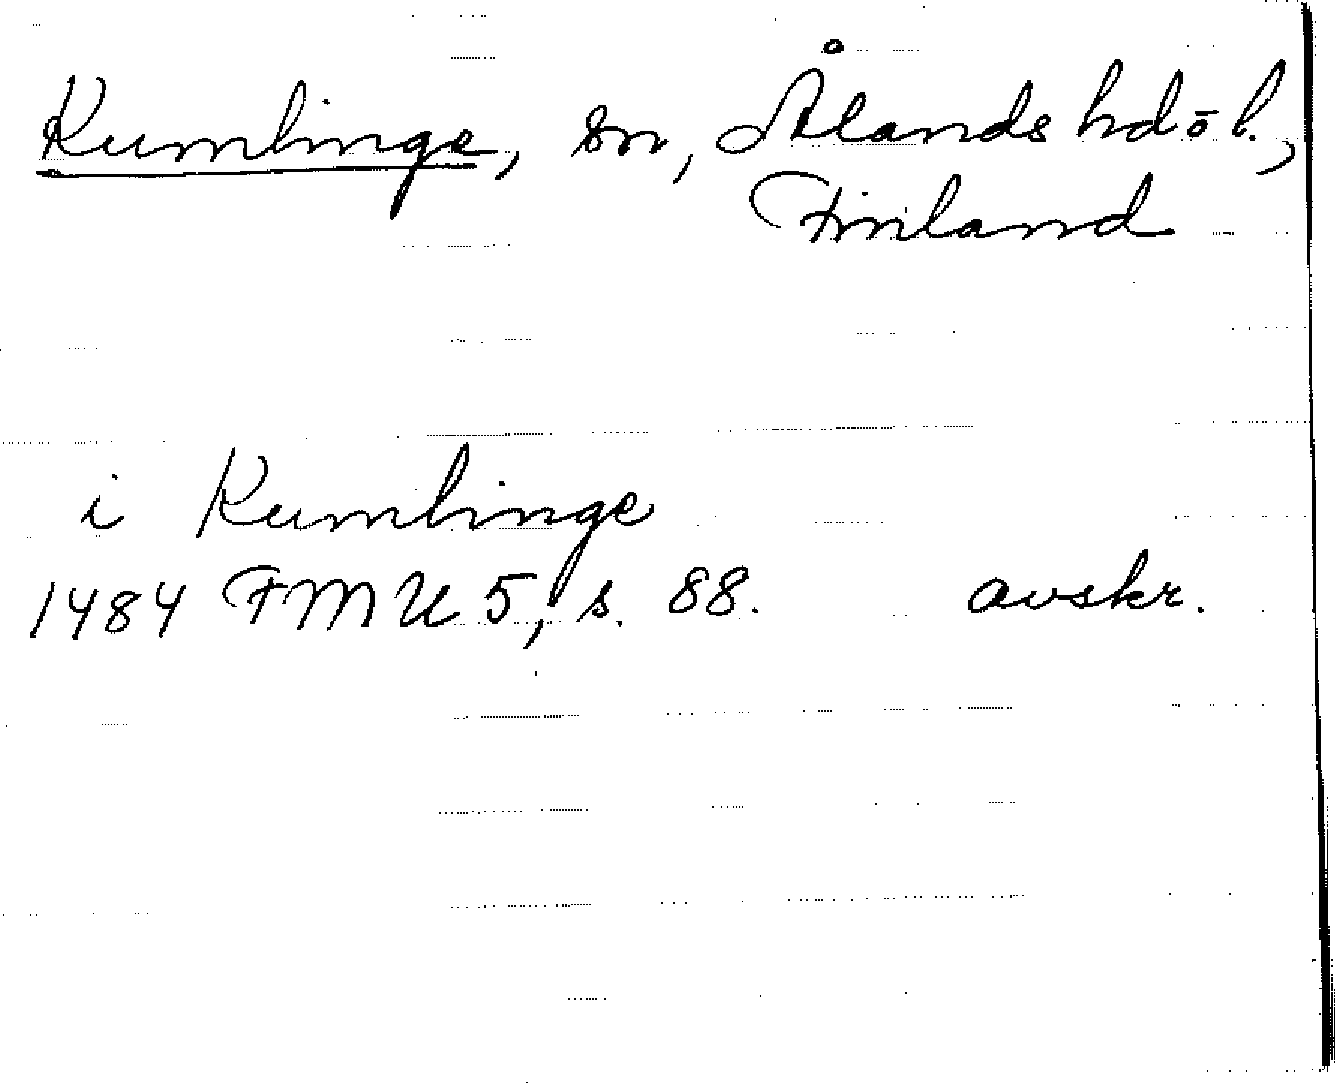 Kumlinge, sn, Ålands hd o l.,
Finland
i Kumlinge
1484 FMU 5, s. 88. avskr.